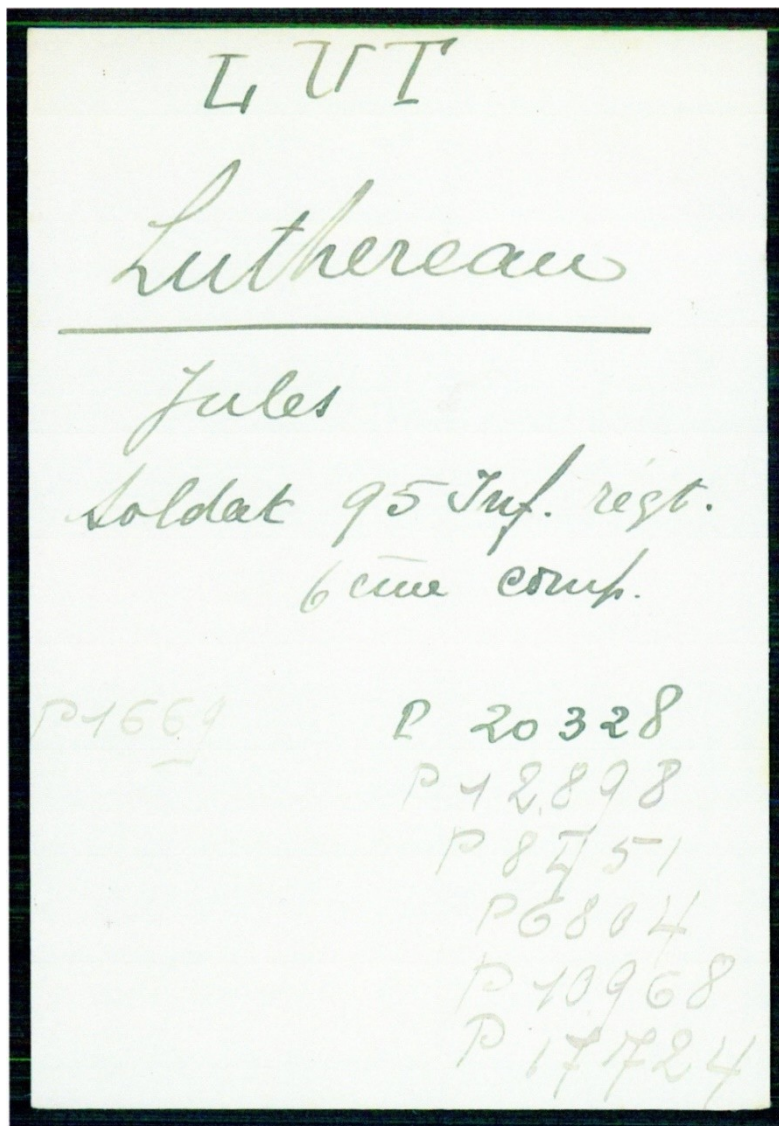 LUT
Luthereau
Jules
Soldat 95 Inf. régt.
6 ème comp.
P1669 P 20328
P 12898
P 8451
P6804
P 10968
P 17724